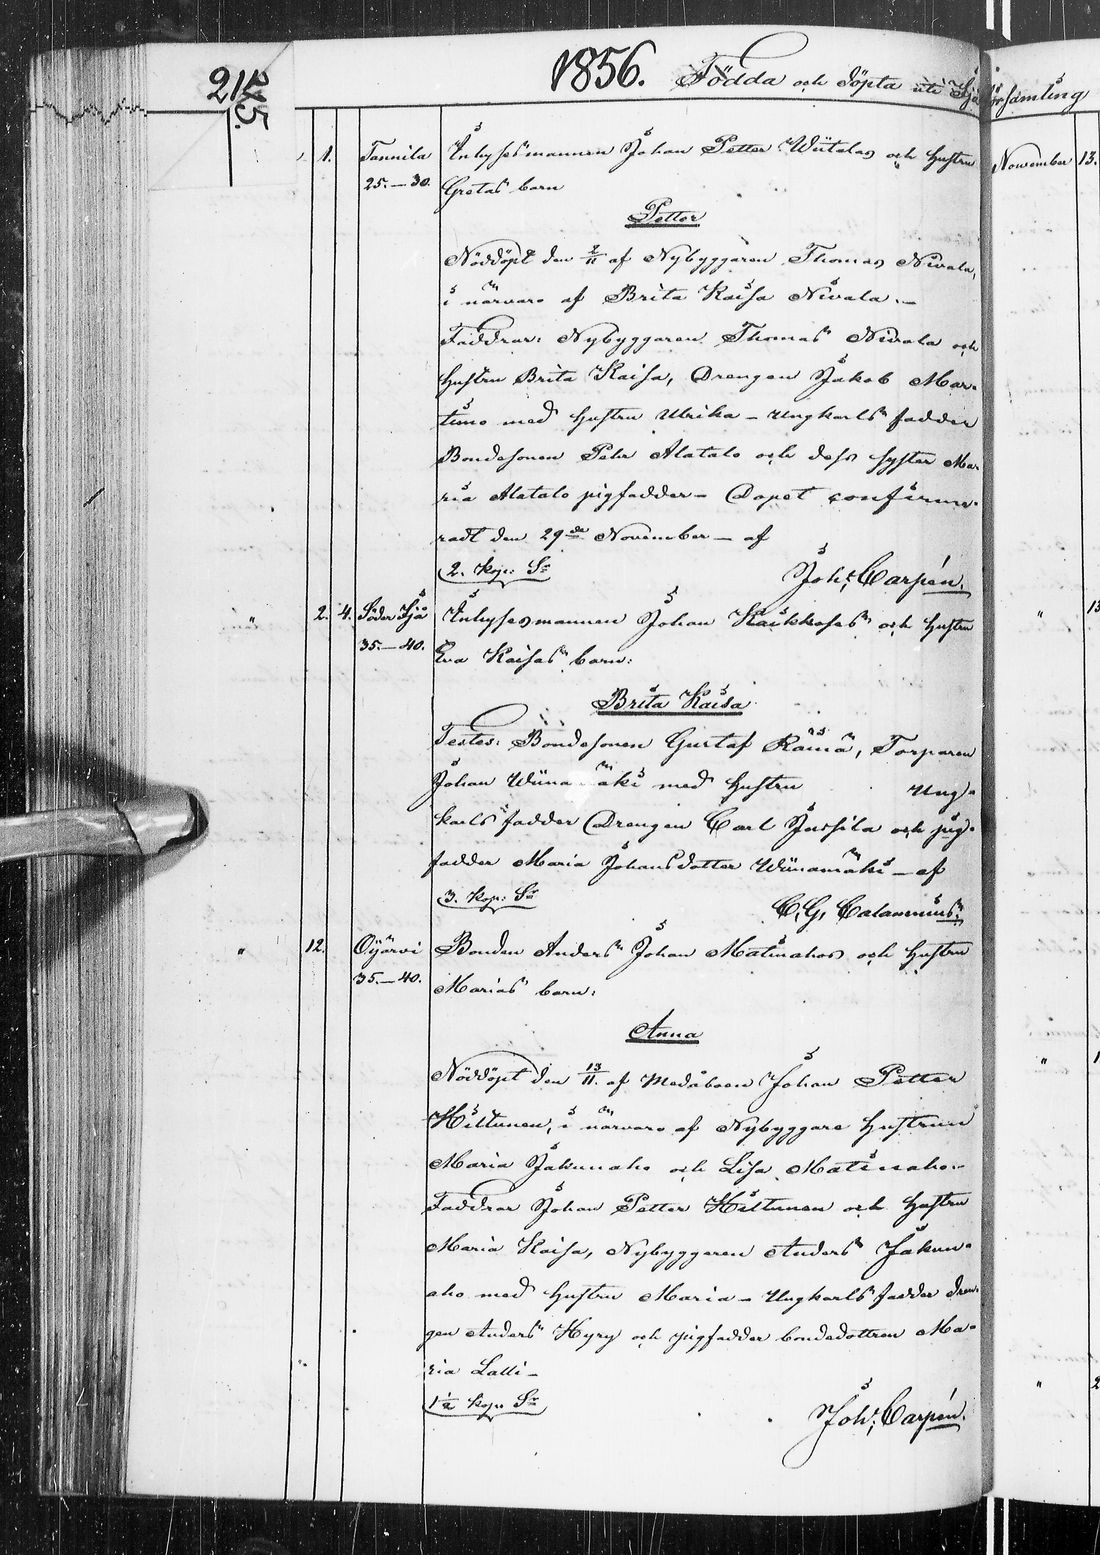 215.
1856. Födda och döpta uti
församling
1. Tannila Inhysesmannen Johan Petter Wiitalas och hustru
25.–30. Gretas barn
November 13.
Petter
Nöddöpt den 2/11 af Nybyggaren Thomas Nivala,
i närvaro af Brita Kaisa Nivala.–
Faddrar: Nybyggaren Thomas Nivala och
hustru Brita Kaisa, Drengen Jakob Mar-
timo med hustru Ulrika – Ungkarls fadder
Bondesonen Pehr Alatalo och dess syster Ma-
ria Alatalo pigfadder – Dopet confirme-
radt den 29de November – af
2. kop: Sr Joh: Carpén.
" 2. 4. Söder Ijå Inhysesmannen Johan Kaikkoses och hustru
35.–40. Eva Kaisas barn:
Brita Kaisa
Testes: Bondesonen Gustaf Räinä, Torparen
Johan Wiinamäki med hustru Ung-
karls fadder Drengen Carl Jussila och pig-
fadder Maria Johansdotter Wiinamäki – af
3. kop: Sr C. G. Calamnius.
" 12. Oijärvi Bonden Anders Johan Matinahos och hustru
35.–40. Marias barn:
Anna
Nöddöpt den 13/11. af Medåboen Johan Petter
Hiltunen, i närvaro af Nybyggare hustrun
Maria Jakunaho och Lisa Matinaho.–
Faddrar Johan Petter Hiltunen och hustru
Maria Kaisa, Nybyggaren Anders Jakun-
aho med hustru Maria – Ungkarls fadder dren-
gen Anders Hyry och pigfadder bondedottren Ma-
ria Lalli –
1½ kop: Sr Joh: Carpén.